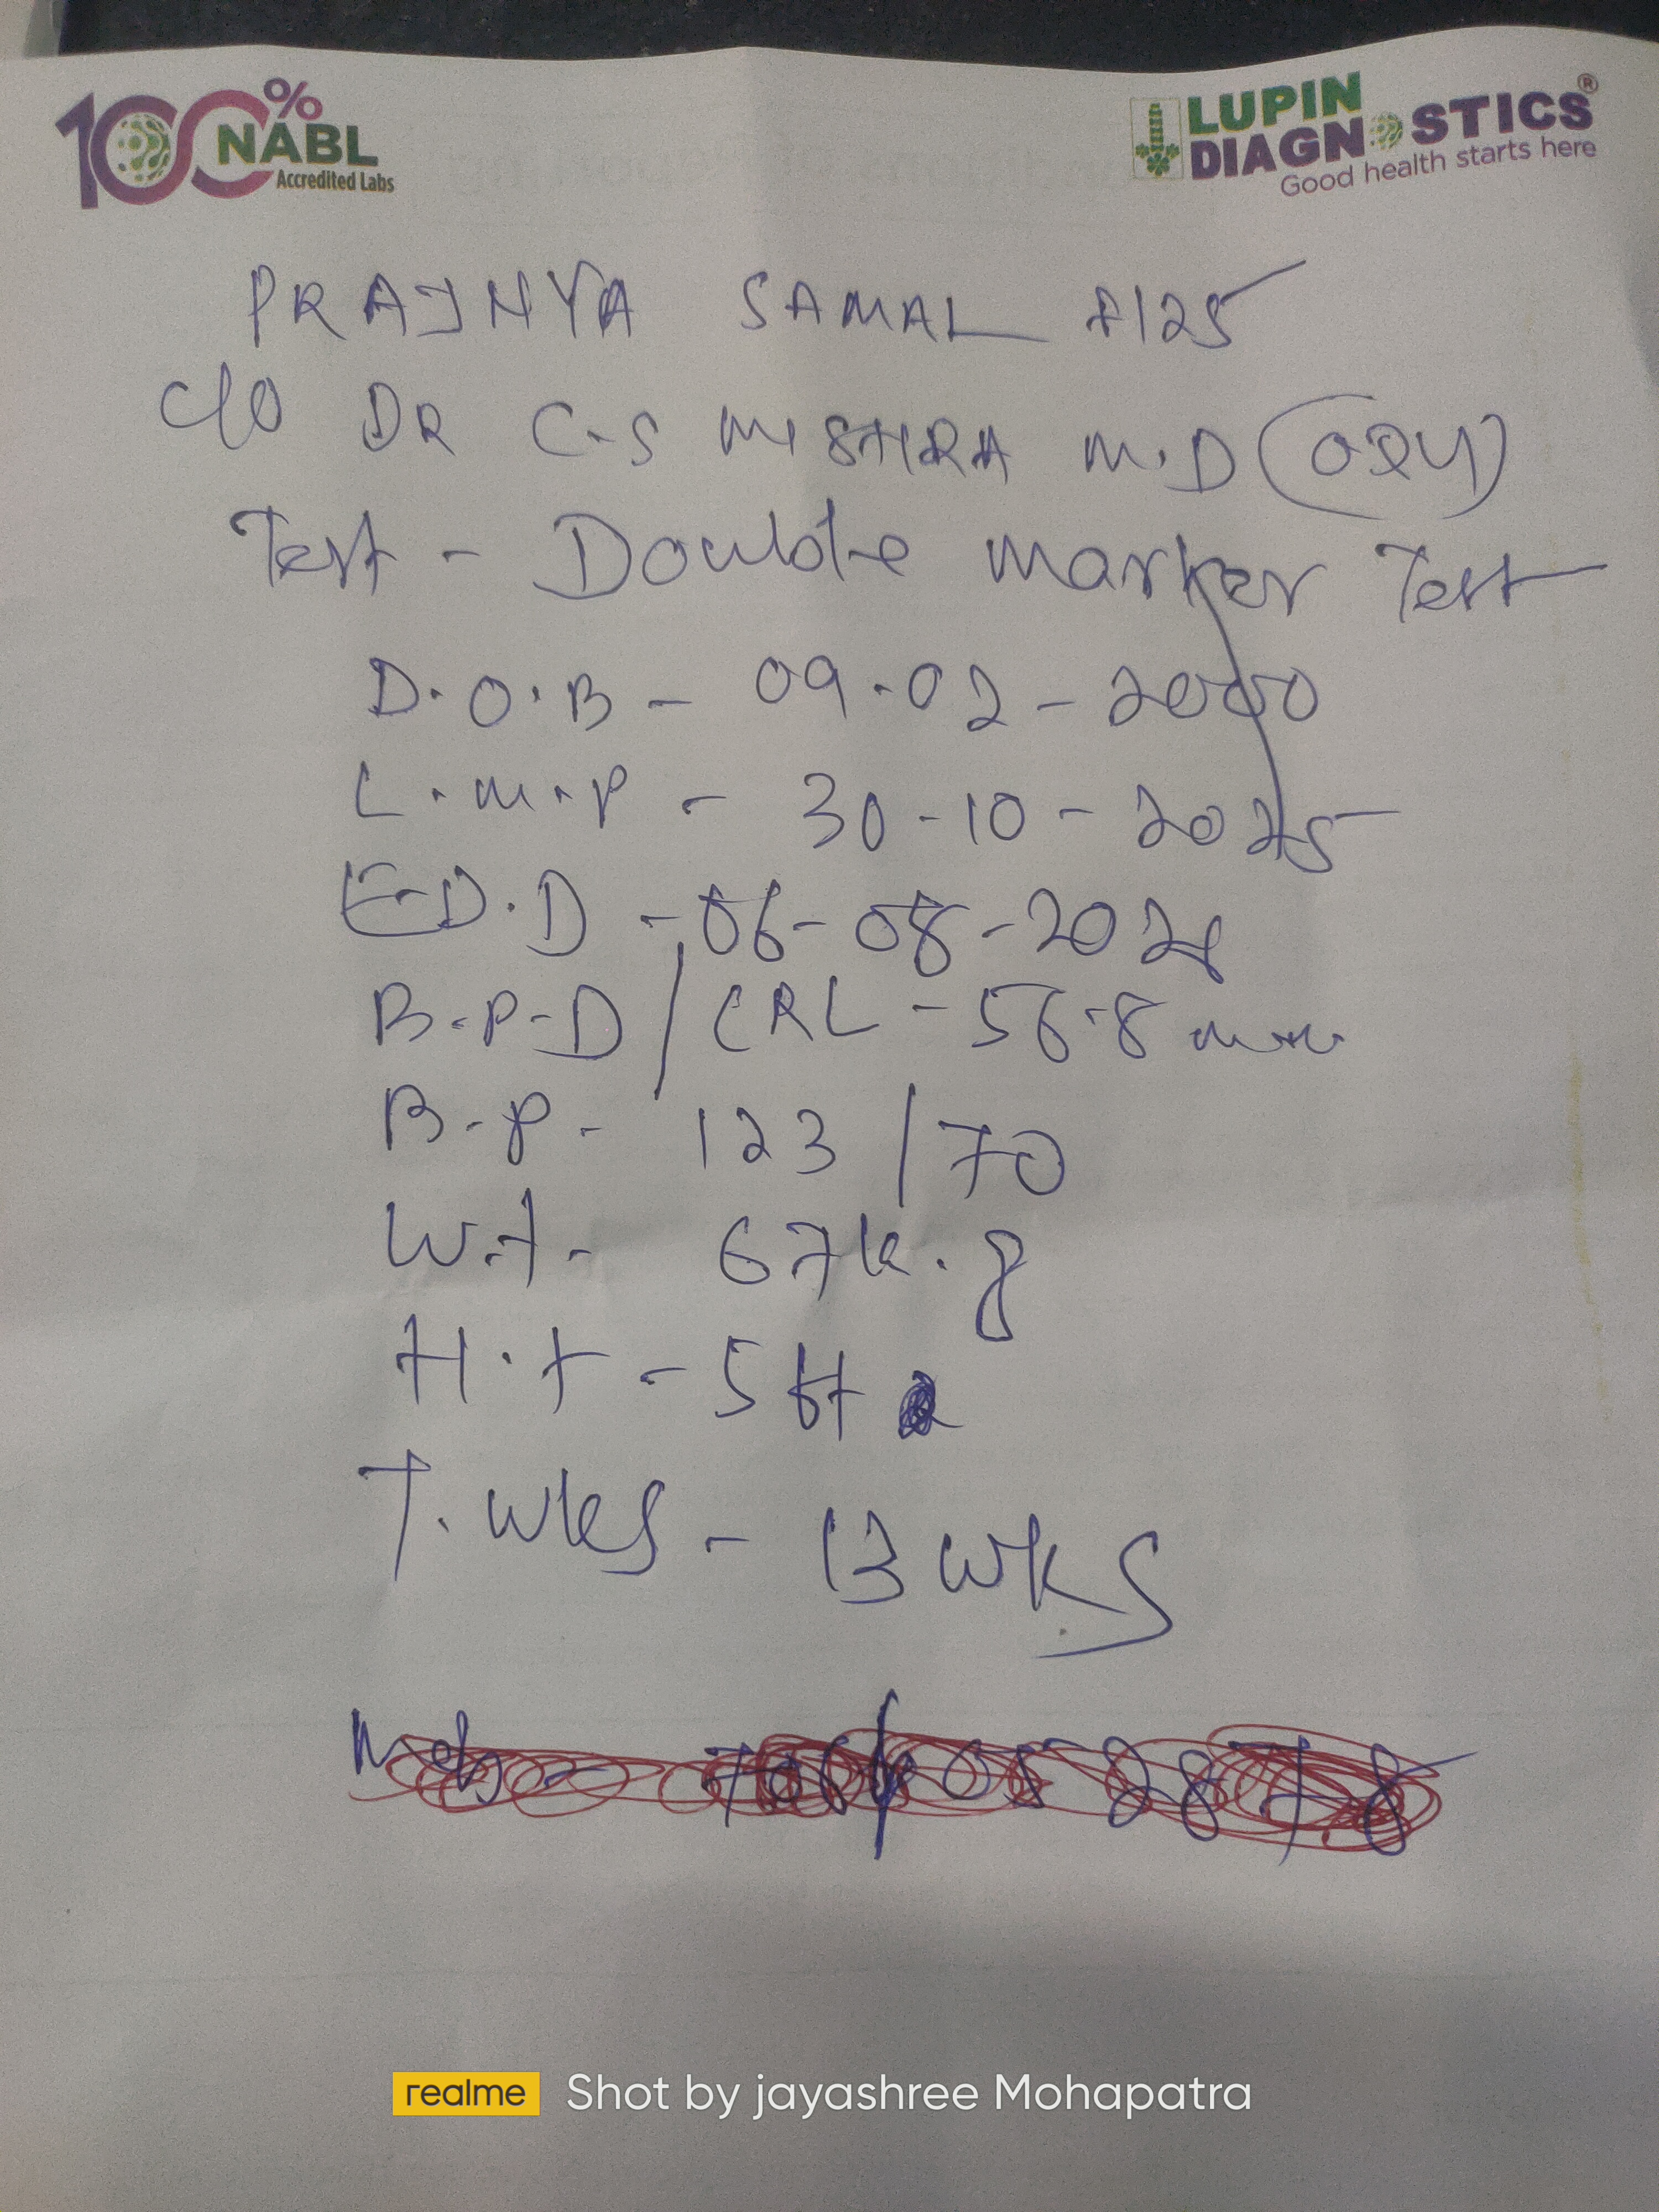 100% NABL
Accredited Labs
LUPIN
DIAGNOSTICS®
Good health starts here
PRAJNYA SAMAL F/25
C/O DR C.S MISHRA M.D (O&G)
Test - Double marker Test
D.O.B - 09.02-2000
L.M.P - 30-10-2025
E.D.D - 06-08-2026
B.P.D / CRL - 56.8 mm
B.P - 123/70
W.t - 67 k.g
H.t - 5 ft
T. wks - 13 WKS
realme Shot by jayashree Mohapatra